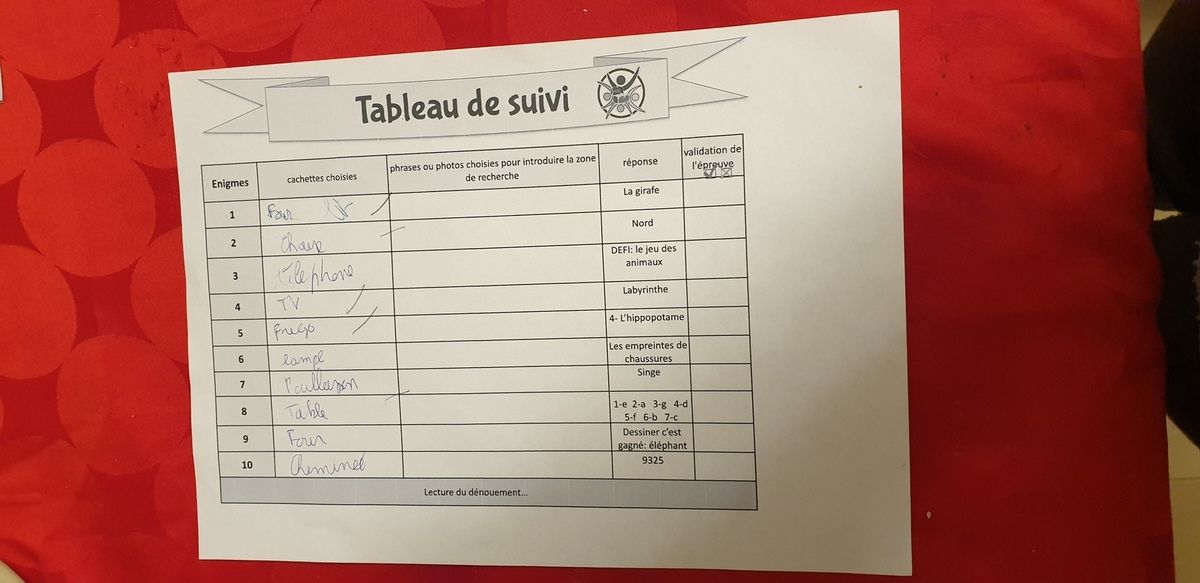 Tableau de suivi
Enigmes
cachettes choisies
phrases ou photos choisies pour introduire la zone
de recherche
réponse
validation de
l'épreuve
1
Four
La girafe
2
Chaise
Nord
3
téléphone
DEFI: le jeu des
animaux
4
TV
Labyrinthe
5
Frigo
4- L'hippopotame
6
lampe
Les empreintes de
chaussures
7
Singe
8
Table
1-e 2-a 3-g 4-d
5-f 6-b 7-c
9
Four
Dessiner c'est
gagné: éléphant
10
Cheminée
9325
Lecture du dénouement...